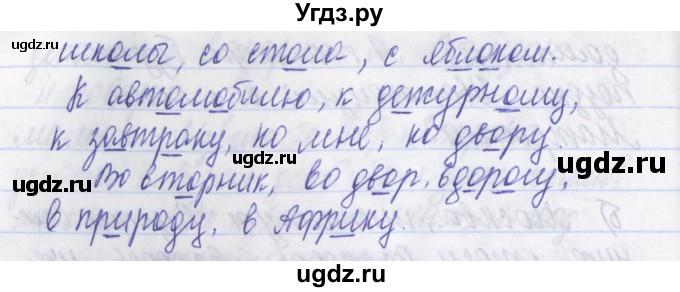 Угдз.ру
школы, со стола, с яблоком.
К автомобилю, к дежурному,
к завтраку, ко мне, ко двору.
Во вторник, во двор, в дорогу,
в природу, в Африку.
ugdz.ru
ugdz.ru
ugdz.ru
ugdz.ru
ugdz.ru
ugdz.ru
ugdz.ru
ugdz.ru